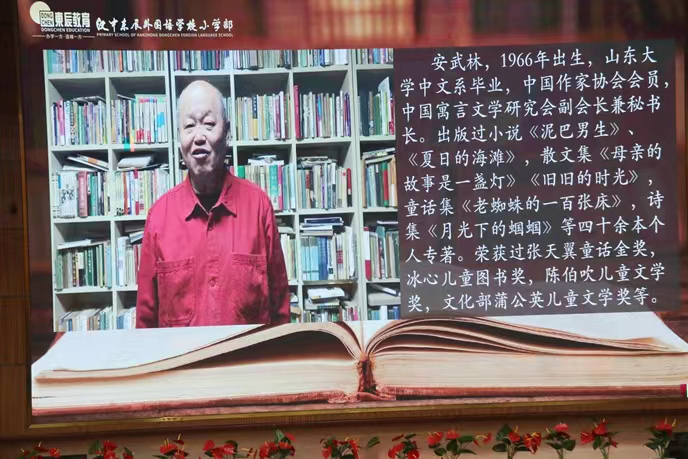 DONG CHEN
東辰教育
DONGCHEN EDUCATION
办学一方·造福一方
汉中东辰外国语学校小学部
PRIMARY SCHOOL OF HANZHONG DONGCHEN FOREIGN LANGUAGE SCHOOL
安武林，1966年出生，山东大
学中文系毕业，中国作家协会会员，
中国寓言文学研究会副会长兼秘书
长。出版过小说《泥巴男生》、
《夏日的海滩》，散文集《母亲的
故事是一盏灯》《旧旧的时光》，
童话集《老蜘蛛的一百张床》，诗
集《月光下的蝈蝈》等四十余本个
人专著。荣获过张天翼童话金奖，
冰心儿童图书奖，陈伯吹儿童文学
奖，文化部蒲公英儿童文学奖等。